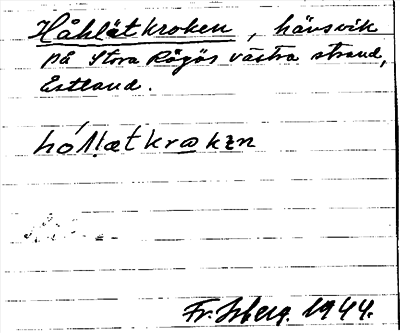 Håhlätkroken, havsvik
på Stora Rågös västra strand,
Estland.
hó́llætkrɷkɛn
Fr. Isberg. 1944.